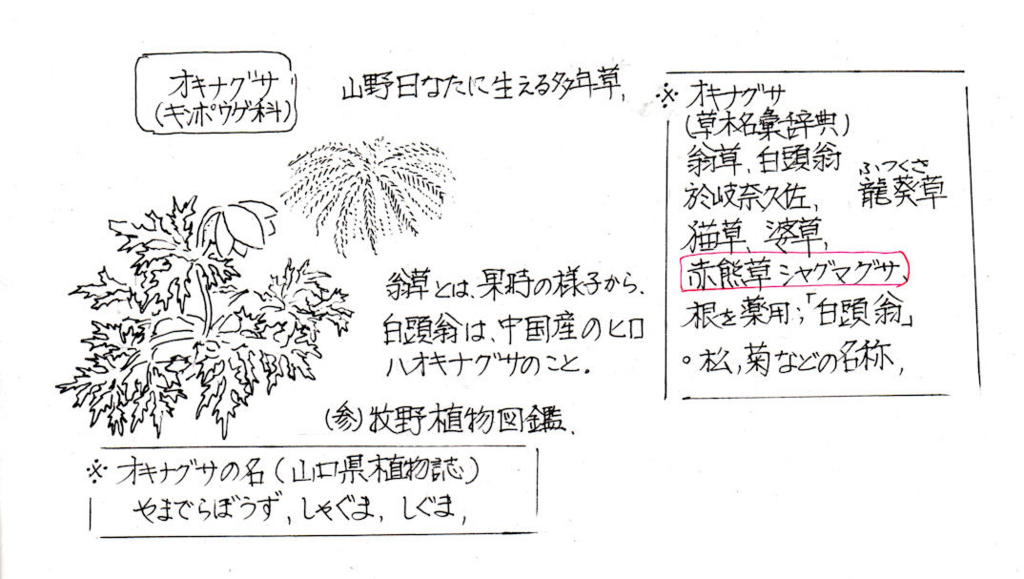 オキナグサ
(キンポウゲ科)
山野日なたに生える多年草,
翁草とは、果時の様子から、
白頭翁は、中国産のヒロ
ハオキナグサのこと.
(参)牧野植物図鑑、
※ オキナグサの名(山口県植物誌)
やまでらぼうず,しゃぐま, しぐま,
※ オキナグサ
(草木名彙辞典)
翁草、白頭翁
ふつくさ
於岐奈久佐, 龍葵草
猫草、婆草,
赤熊草シャグマグサ、
根を薬用;「白頭翁」
○松,菊などの名称,